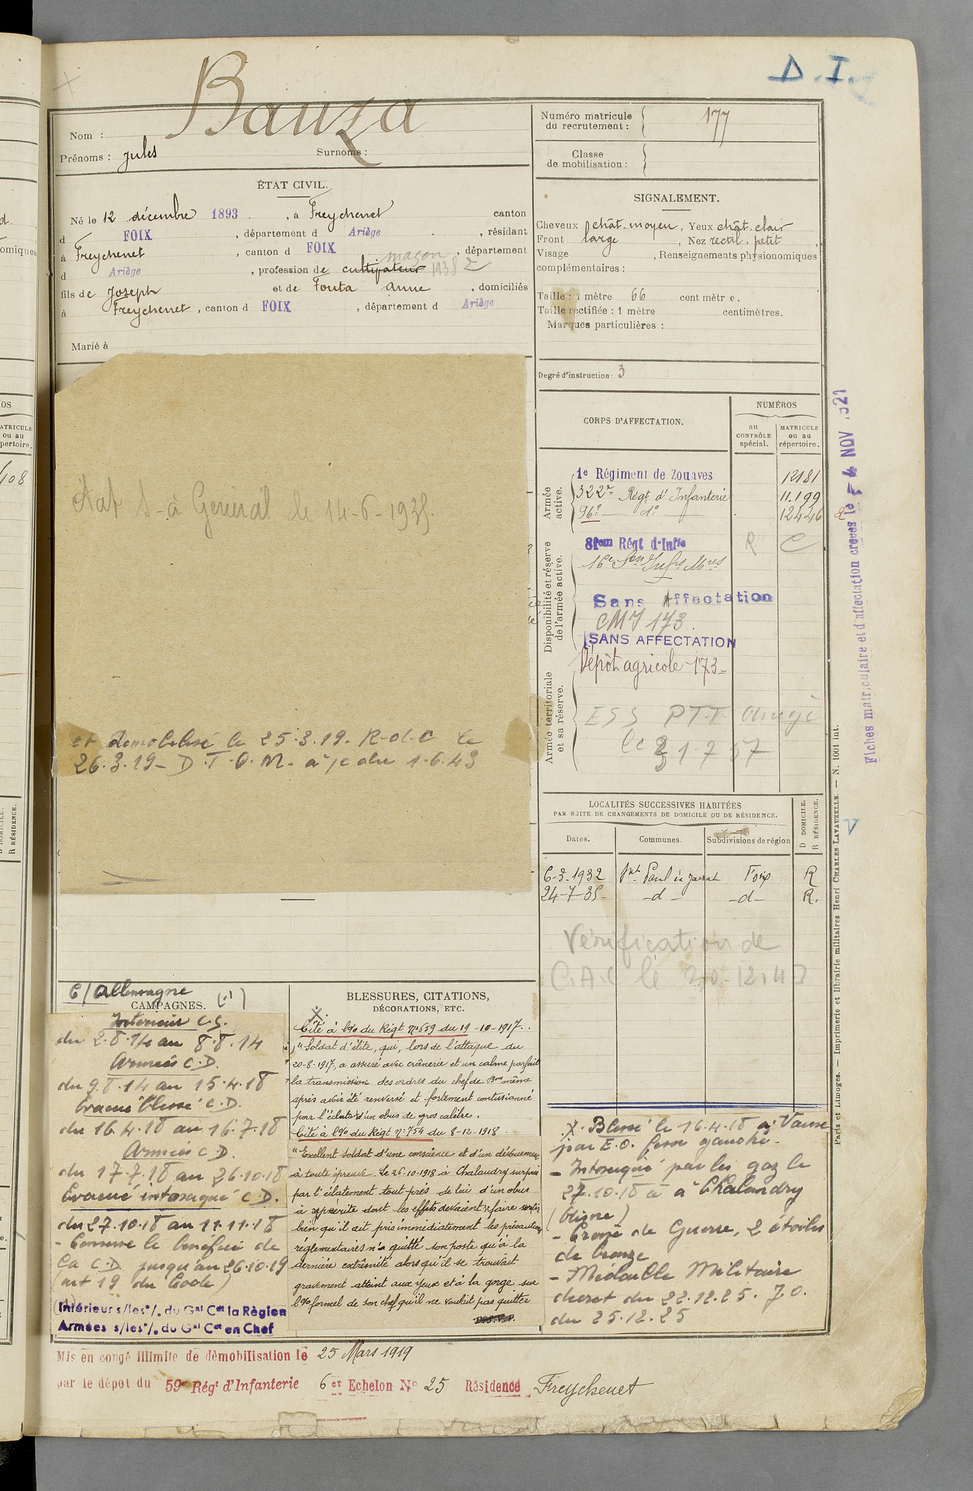 D. I.
Bauza
Nom :
Prénoms : Jules Surnoms :
Numéro matricule du recrutement : 177
Classe de mobilisation :
ÉTAT CIVIL.
Né le 12 décembre 1893, à Freychenet canton
d FOIX, département d Ariège, résidant
à Freychenet, canton d FOIX, département
maçon 1938
d Ariège, profession de cultivateur
fils de Joseph et de Fonta Anne, domiciliés
à Freychenet, canton d FOIX, département d Ariège
Marié à
SIGNALEMENT.
Cheveux chât. moyen, Yeux chât. clair
Front large, Nez rectil. petit
Visage , Renseignements physionomiques
complémentaires :
Taille : 1 mètre 66 centimètre.
Taille rectifiée : 1 mètre centimètres.
Marques particulières :
Degré d'instruction : 3
CORPS D'AFFECTATION.
NUMÉROS
AU CONTRÔLE spécial.
MATRICULE ou au répertoire.
Armée active.
1e Régiment de Zouaves 12181
322e Régt d'Infanterie 11.199
96e d° 12446
Disponibilité et réserve de l'armée active.
81em Régt d'Inftie
16e Son Infrs Mres
Sans Affectation
CMI 173
SANS AFFECTATION
Dépôt agricole 173
Armée territoriale et sa réserve.
ESS PTT Ariège
le 31 7 57
Fiches matriculaire et d'affectation créées le 4 NOV. 1921
état S-à Général le 14-6-1935
et démobilisé le 25.3.19. R.d.C le
26.3.19 - D.T.O.M. à/c du 1.6.43
LOCALITÉS SUCCESSIVES HABITÉES
PAR SUITE DE CHANGEMENTS DE DOMICILE OU DE RÉSIDENCE.
Dates. Communes. Subdivisions de région
D DOMICILE.
R RÉSIDENCE.
6-3-1932 St Paul de Jarrat Foix R
24-7-35 -d- -d- R.
Vérification de
C.A.C le 30.12.43
Paris et Limoges. — Imprimerie et librairie militaires Henri CHARLES LAVAUZELLE. — N. 1001 lut.
C/ Allemagne
CAMPAGNES.
Intérieur C.S.
du 2.8.14 au 8.8.14
Armées C.D.
du 9 8.14 au 15.4.18
Evacué blessé C.D.
du 16.4.18 au 16.7.18
Armées C.D.
du 17.7.18 au 26.10.18
Evacué intoxiqué C.D.
du 27.10.18 au 11.11.18
- Conserve le bénéfice de
la C.D jusqu'au 26.10.19
(art 19 du Code)
Intérieur s/les °/. du Gal Cat la Région
Armées s/les °/. du Gal Cat en Chef
BLESSURES, CITATIONS,
DÉCORATIONS, ETC.
X
Cité à l'Ore du Régt n° 659 du 19-10-1917.
"Soldat d'élite, qui, lors de l'attaque du
20-8-1917, a assuré avec crânerie et un calme parfait
la transmission des ordres du chef de Bon même
après avoir été renversé et fortement contusionné
par l'éclatet d'un obus de gros calibre.
Cité à l'Ore du Régt n° 754 du 8-12-1918.
"Excellent soldat d'une conscience et d'un dévouement
à toute épreuve. Le 26-10-1918 à Chalandry surpris
par l'éclatement tout près de lui d'un obus
à ypérite dont les effets devaient se faire sentir
bien qu'il ait pris immédiatement les précautions
réglementaires n'a quitté son poste qu'à la
dernière extrémité alors qu'il se trouvait
gravement atteint aux yeux et à la gorge sur
l'ore formel de son chef qu'il ne voulait pas quitter
X. Blessé le 16.4.18 à Vaux
par E.O. fesse gauche.
- Intoxiqué par les gaz le
27.10.18 à Chalandry
(Aisne)
- Croix de Guerre, 2 étoiles
de bronze
- Médaille Militaire
décret du 22.12.25. J.O.
du 25.12.25
Mis en congé illimité de démobilisation le 25 Mars 1919
par le dépôt du 59e Régt d'Infanterie 6 et Echelon N° 25. Résidence Freychenet